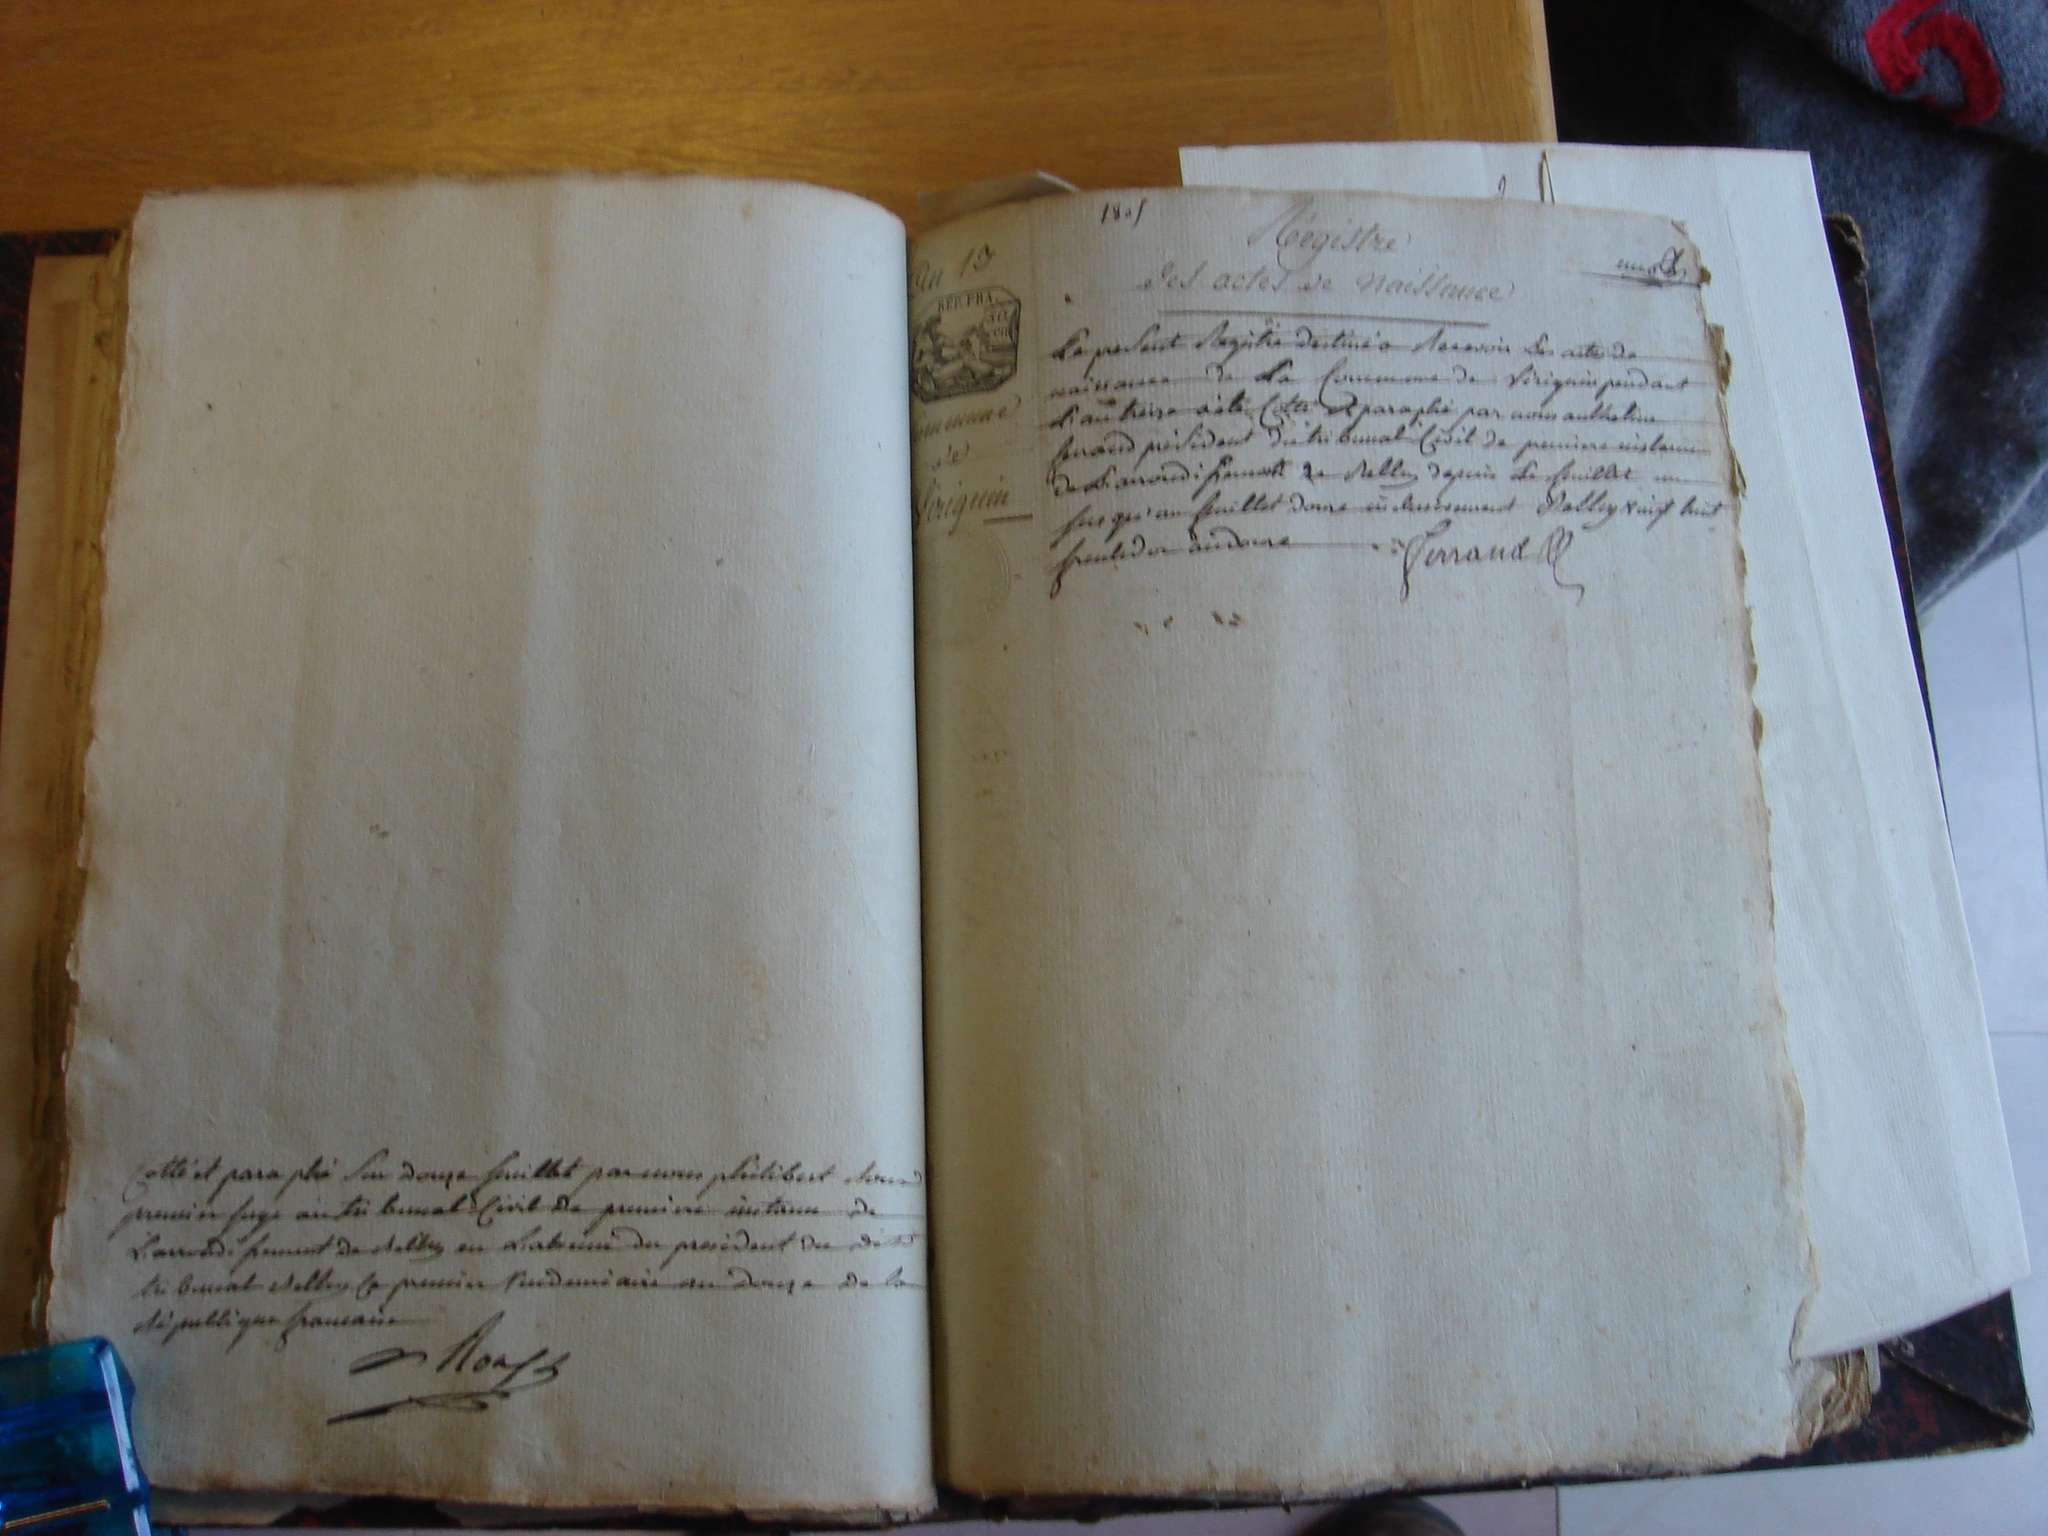 Cotté et paraphé sur douze feuillet par nous philibert
premier juge au tribunal Civil de premiere instance de
L'arrondissement de Belley en L'absence du president du dit
tribunal Belley Le premier Vendemiaire an douze de la
République francaise
1805
Régistre
des actes de Naissance
an 13
REP. FRA.
Commune
de
Viriguin
Le present Registre destiné a Recevoir Les actes de
naissance de La Commune de Viriguin pendant
L'an treize a été Cotté et paraphé par nous anthelme
ferrand président du tribunal Civil de premiere instance
de L'arrondissement de Belley depuis Le feuillet un
jusqu'au feuillet douze inclusivement Belley vingt huit
fructidor an douze
Ferrand